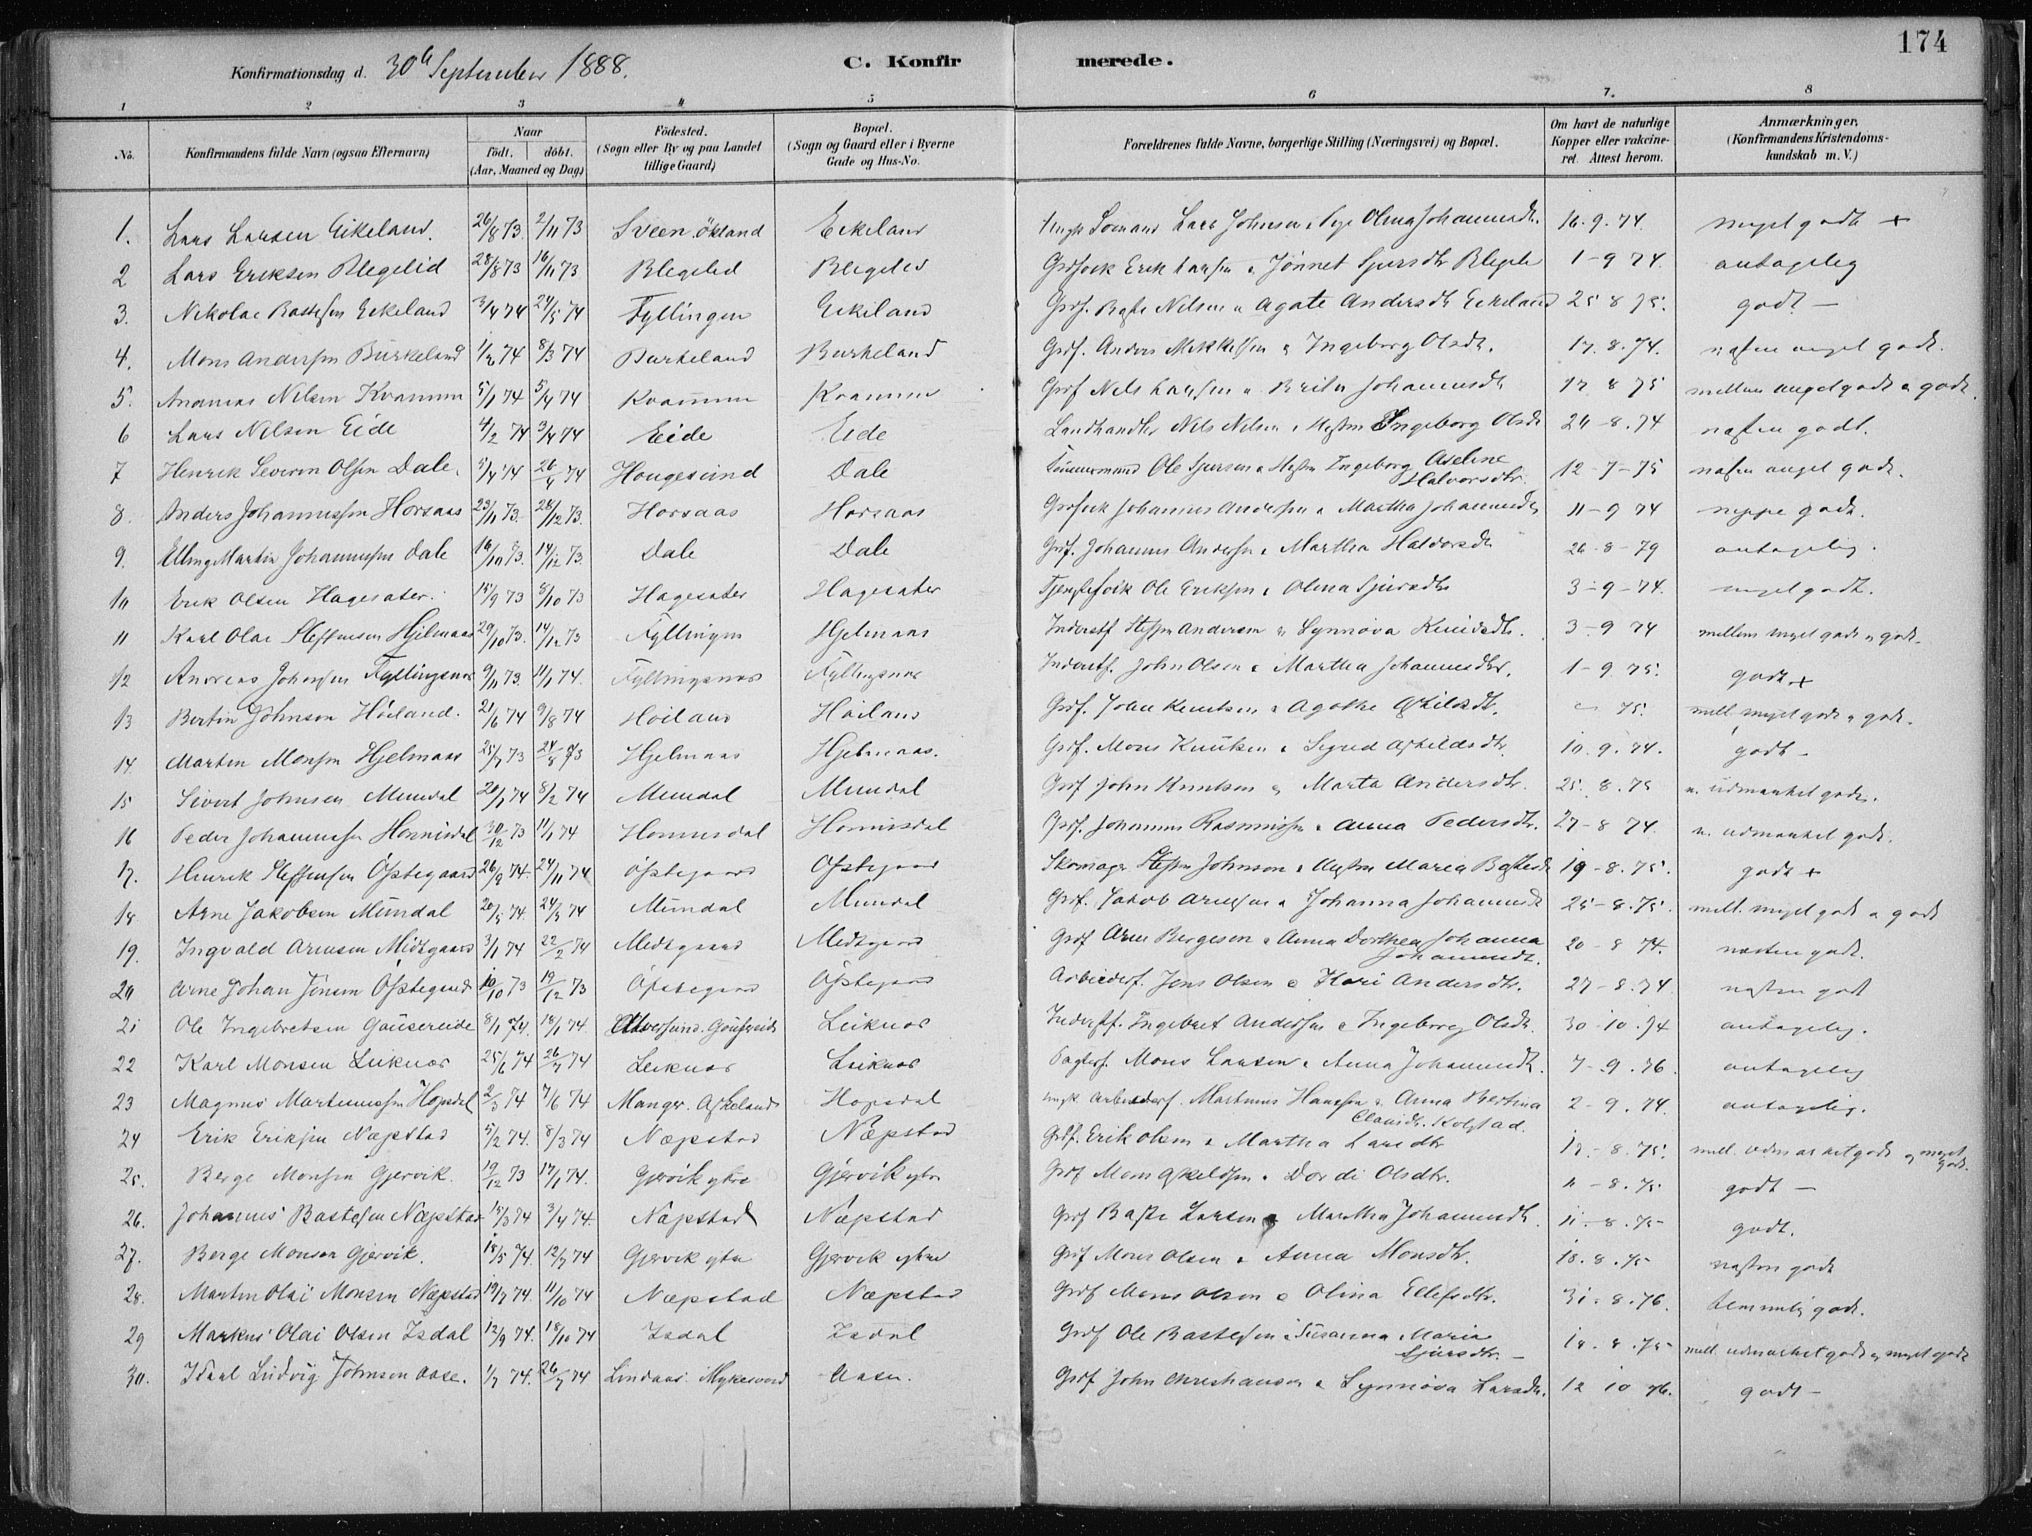 174
Konfirmationsdag d. 30th September 1888. C. Konfirmerede.
1 2 3 4 5 6 7. 8
No. Konfirmandens fulde Navn (ogsaa Efternavn) Naar født. døbt. (Aar, Maaned og Dag) Fødested. (Sogn eller By og paa Landet tillige Gaard) Bopæl. (Sogn og Gaard eller i Byerne Gade og Hus-No. Forældrenes fulde Navne, borgerlige Stilling (Næringsvei) og Bopæl. Om havt de naturlige Kopper eller vakcineret. Attest herom. Anmærkninger, (Konfirmandens Kristendomskundskab m. V.)
1. Lars Larsen Eikeland. 26/8 73. 2/11 73 Sveen Økland Eikeland Lars Johnsen Olina Johannesdtr. 16.9.74. meget godt +
2 Lars Eriksen Blegelid 28/8 73 16/11 73 Blegelid Blegelid Erik Larsen Jønnet Sjursdtr 1-9 74. antagelig
3. Nikolai Bastesen Eikeland 3/4 74 24/5 74 Fyllingen Eikeland Grdf. Baste Nilsen & Agate Andersdtr Eikeland 25 8 75. godt -
4. Mons Andersen Burkeland 1/2 74 8/3 74 Burkeland Burkeland Grdf. Anders Mikkelsen & Ingeborg Olsdtr. 17.8.74. næsten meget godt.
5. Andreas Nilsen Kvamme 5/1 74 5/4 74 Kvamme Kvamme Grdf Nels Larsen & Brita Johannesdtr 17 8 75 mellem meget godt & godt.
6 Lars Nilsen Eide 4/2 74 3/4 74 Eide Eide Landhandler Nils Nilsen & Hustru Ingeborg Olsdtr 24-8.74 næsten godt.
7 Henrik Severin Olsen Dale. 5/4 74 26/4 74 Hougesund Dale Tømmermand Ole Sjursen & Hustru Ingeborg Aseline Halvorsdtr. 12-7-75 næsten meget godt.
8. Anders Johannessen Horsaas 23/11 73. 26/12 73. Horsaas Horsaas Johannes Andersen & Martha Johannesdtr 11-9 74 neppe godt.
9. Elling Martin Johannessen Dale 16/10 73. 14/12 73. Dale Dale Grdf. Johannes Andersen & Martha Haldorsdtr 26-8-79 antagelig.
10 Erik Olsen Hagesæter. 14/9 73 5/10 73 Hagesæter Hagesæter Ole Eriksen & Olina Sjursdtr 3-9-74. meget godt.
11 Karl Olai Steffensen Hjelmaas 29/10 73. 14/12 73 Fyllingen Hjelmaas Inderstf. Steffen Andersen & Synnøva Knudsdtr. 3-9 74 mellem meget godt & godt.
12 Andreas Johnsen Fyllingsnæs 9/11 73. 11/1 74. Fyllingsnæs Fyllingsnæs Inderstf. John Olsen & Martha Johannesdtr. 1-9.75. godt +
13 Bertin Johnsen Høiland. 21/6 74 9/8 74 Høiland Høiland Grdf. John Knutsen & Agathe Askildsdtr. 75. mell. meget godt & godt.
14 Martin Monsen Hjelmaas 25/7 73 24/8 73 Hjelmaas Hjelmaas. Grdf. Mons Knutsen & Sigrid Askildsdtr. 10.9.74. godt -
15 Sivert Johnsen Mundal 20/1 74 8/2 74 Mundal Mundal Grdf John Knutsen & Marta Andersdtr. 25.8.75 n. udmærket godt.
16 Peder Johannessen Honnisdal 30/12 73 11/1 74 Honnisdal Honnisdal Grdf. Johannes Rasmussen & Anna Pedersdtr. 27-8 74. n. udmærket godt.
17. Henrik Steffensen Øfstegaard 26/9 74. 24/11 74 Øfstegaard Øfstegaard Skomager Steffen Johnsen & Hustru Maria Bastesdtr 19-8.75. godt +
18 Arne Jakobsen Mundal 20/5 74. 24/5 74 Mundal Mundal Grdf. Jakob Arnesen & Johanna Johannesdtr 25-8.75. mell. meget godt & godt
19. Ingvald Arnesen Midtgaard 3/1 74 22/2 74 Midtgaard Midtgaard Grdf Arne Bergesen & Anna Dorthea Johanna Johannesdtr. 20-8 74. næsten godt.
20 Arne Johan Jensen Øfstegaard 10/10 73 19/12 73 Øfstegaard Øfstegaard Arbeiderf. Jens Olsen & Kari Andersdtr. 27-8.74 næsten godt
21 Ole Ingebretsen Gausereide 8/1 74. 18/1 74. Alversund. Gausereide Leiknæs Inderstf. Ingebret Andersen & Ingeborg Olsdtr. 30-10.74 antagelig.
22 Karl Monsen Leiknæs 25/6 74 26/7 74 Leiknæs Leiknæs Mons Larsen & Anna Johannesdtr. 7-9.76. antagelig
23 Magnus Martinussen Hopsdal 2/3 74 7/6 74 Manger. Askeland Hopsdal Arbeiderf. Martinus Hansen & Anna Bertina Kolstad. 2-9.74. antagelig.
24 Erik Eriksen Næpstad 5/2 74. 8/3 74 Næpstad Næpstad Grdf. Erik Olsen & Martha Larsdtr 17.-8.75. mell. udmærket godt & meget godt.
25. Berge Monsen Gjervik. 19/12 73 17/1 74. Gjervik ytre Gjervik ytre Grdf Mons Askeldsen & Dordi Olsdtr. 11-8.75 godt -
26. Johannes Bastesen Næpstad 15/3 74 3/4 74. Næpstad Næpstad Grdf Baste Larsen & Martha Johannesdtr. 11.-8.75- godt.
27. Berge Monsen Gjervik. 18/5 74. 12/7 74 Gjervik ytre Gjervik ytre Grdf Mons Olsen & Anna Monsdtr. 18.8.75- næsten godt
28. Martin Olai Monsen Næpstad 19/7 74 11/10 74 Næpstad Næpstad Grdf Mons Olsen & Olina Ellefsdtr. 31.8.76. temmelig godt.
29 Markus Olai Olsen Isdal 12/9 74. 18/10 74 Isdal Isdal Grdf Ole Bastesen & Susanna Maria Sjursdtr. - 18.8.75- mell. udmærket godt & meget godt
30. Ludvig Johnsen Aase. 1/7 74. 26/7 74 Lindaas. Mykesvord Aasen. Grdf John Christiansen & Synnøva Larsdtr. 12 10 76. godt -